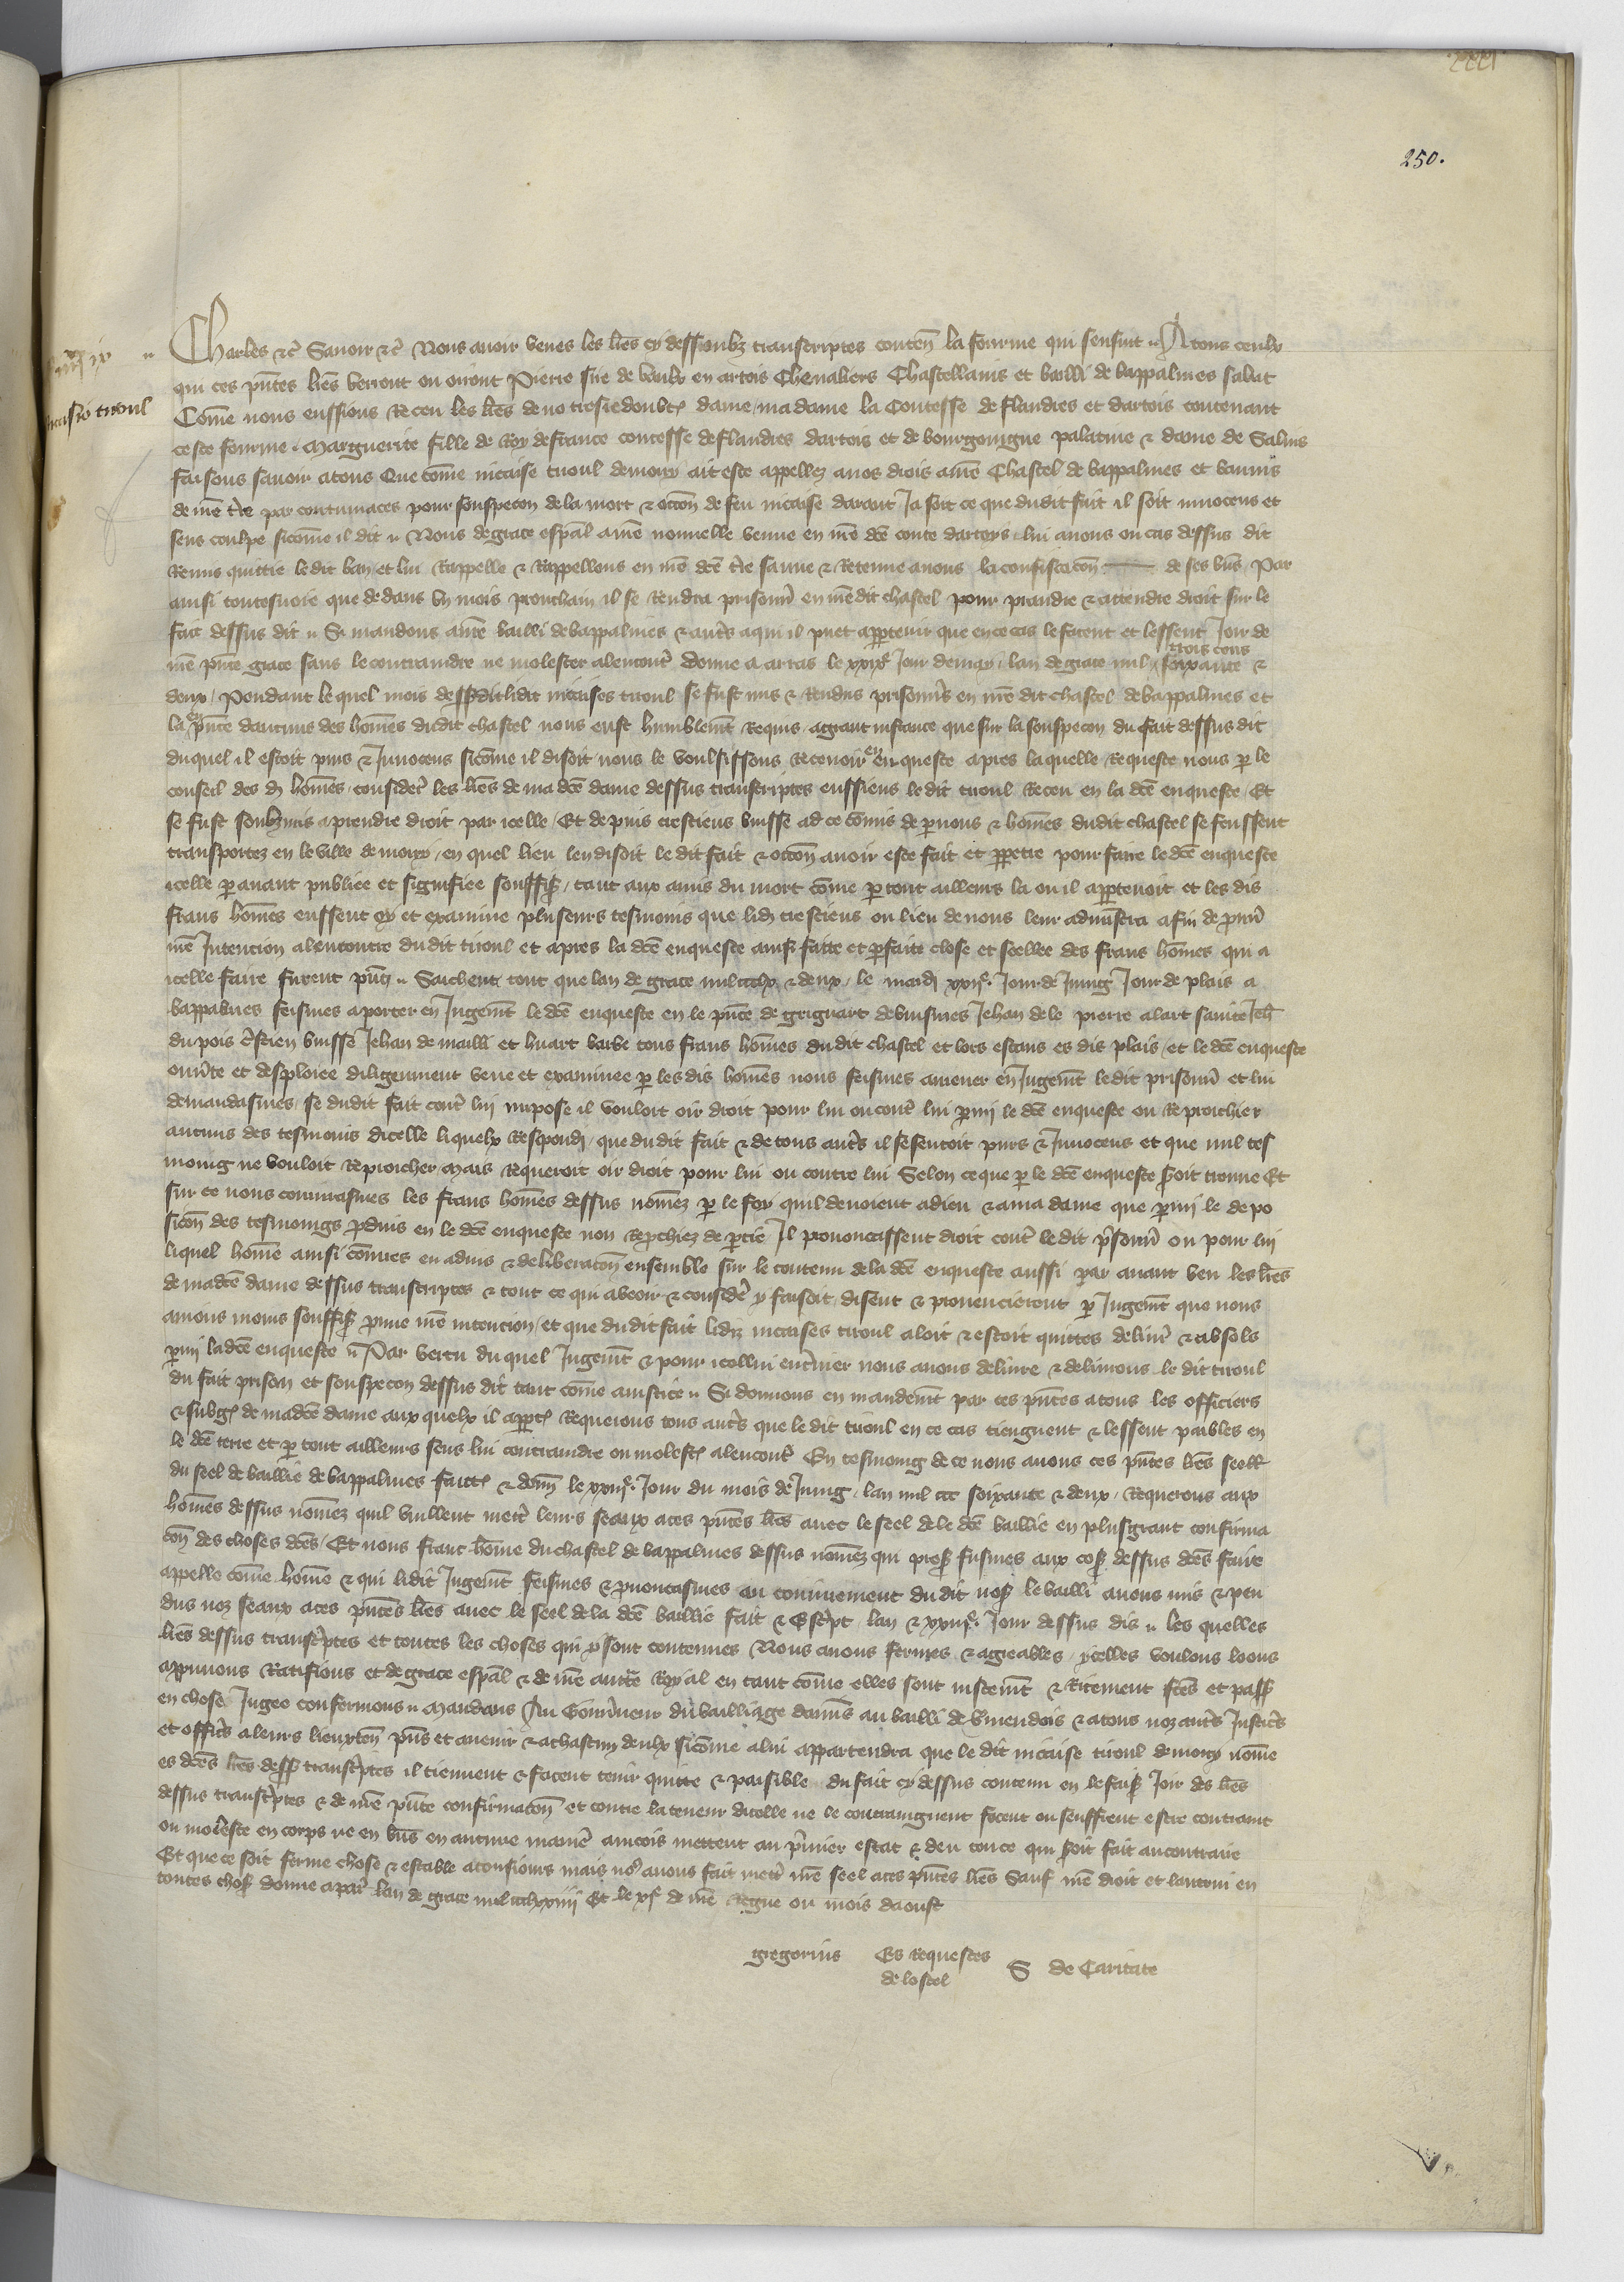 250.
Charles etc Savoir etc Nous avoir veues les lres cy dessoubz transcriptes conten la fourme qui sensuit A tous ceulx
qui ces pntes lres verront ou orront Pierre sire de vaulx en artois Chevaliers Chastellains et bailli de bappalmes salut
Come nous eussions Receu les lres de no tresredoubt dame madame la Contesse de flandres et dartois contenant
ceste fourme Marguerite fille de Roy de france contesse de flandres dartois et de bourgoingne palatine & dame de Salins
faisons savoir atous Que come nicaise tuoul demory ait este appellez anos drois a nre Chastel de bappalmes et bannis
de nre tre par contumaces pour souspecon de la mort & occon de feu nicaise darant Ja soit ce que dudit fait il soit innocens et
sens coulpe sicome il dit Nous de grace espal a nre nouvelle venue en nre dce conte dartoys lui avons ou cas dessus dit
Remis quittie le dit ban et lui Rappelle & Rappellons en nre dce tre sauve & Retenue anous la confiscacon de ses bns Par
ainsi toutesvoie que dedans un mois prouchain il se Rendra prisonn en nre dit chastel pour prandre & attendre droit sur le
fait dessus dit Si mandons a nre bailli de bappalmes & autres aqui il puet appartenir que en ce cas le facent et lessent Joir de
nre pnte grace sans le contraindre ne molester alencontre donne a arras le xxixe Jour demay lan de grace mil trois cens soixante &
deux Pendant le quel mois dessusdit lidit nicaises tuoul se fust mis & Rendus prisonn en nre dit chastel de bappalmes et
en la pnce daucuns des homes dudit chastel nous eust humblemt Requis a grant instance que sur la souspecon du fait dessus dit
duquel il estoit purs & Innocens sicome il disoit nous le voulsissons Recevoir en enqueste apres laquelle Requeste nous p le
conseil des d homes consider les lres de ma dce dame dessus transcriptes eussiens le dit tuoul Receu en la dce enqueste Et
se fust soubzmis aprendre droit par icelle Et depuis crestiens buisse ad ce comis de p nous & homes dudit chastel se feussent
transportez en le ville demory en quel lieu len disoit le dit fait & occon avoir este fait et perpetre pour faire le dce enqueste
icelle p avant publiee et signifiee souffis tant aux amis du mort come p tout ailleurs la ou il appartenoit et les dis
frans homes eussent oy et examine pluseurs tesmoins que lid crestiens ou lieu de nous leur admistra afin de prouv
nre Intencion alencontre dudit tuoul et apres la dce enqueste ainsi faite et pfaite close et seellee des frans homes qui a
icelle faire furent pns Saichent tout que lan de grace mil ccclx & deux le mardi Jour de Juing Jour de plais a
bappalmes feismes aporter en Jugemt le dce enqueste en le pnce de grignart de buismes Jehan de le pierre alart sainte Jeh
dupois crestien buisse Jehan de mailli et huart barbe tous frans homes du dit chastel et lors estans es dis plais et le dce enqueste
ouverte et desploiee diligemment veue et examinee p les dis homes nous feismes amener en Jugemt le dit prisonn et lui
demandasmes se dudit fait contre lui impose il vouloit oir droit pour lui ou contre lui pmi le dce enqueste ou Reprochier
aucuns des tesmoins dicelle liquelx Respondi que du dit fait & de tous autres il se sentoit purs & Innocens et que nul tes
moing ne vouloit Reprocher Mais Requeroit oir droit pour lui ou contre lui Selon ce que p le dce enqueste seroit trouve Et
sur ce nous conjurasmes les frans homes dessus nomez p le foy quil devoient adieu & ama dame que pmi le depo
sicon des tesmoings pduis en le dce enqueste non Reprochiez de ptie Il prononcassent droit contre le dit prisonn ou pour lui
liquel home ainsi conjures en advis & deliberacon ensemble sur le contenu de la dce enqueste aussi par avant veu les lres
de madce dame dessus transcriptes & tout ce qui aveoir & consider y faisoit disent & pronuncierent p Jugemt que nous
aviens moins souffis prouve nre intencion et que dudit fait lidiz nicaises tuoul aloit & estoit quittes delivr & absols
pmi ladce enqueste Par vertu du quel Jugemt & pour icellui enteriner nous avons delivre & delivrons le dit tuoul
du fait prison et souspecon dessus dit tant come a justice Si donnons en mandemt par ces pntes atous les officiers
& subg de madce dame aux quelx il appt Requerons tous autres que le dit tuoul en ce cas tiengnent & lessent paisibles en
le dce terre et p tout ailleurs sens lui contraindre ou molest alencontre En tesmoing de ce nous avons ces pntes lres seell
du seel de baillie de bappalmes fait & donn le Jour du mois de Juing lan mil ccc soixante & deux Requerons aux
homes dessus nomez quil vuillent mettre leurs seaux aces pntes lres avec le seel de le dce baillie en plusgrant confirma
con des choses dces Et nous franc home du chastel de bappalmes dessus nomez qui pns fusmes aux coses dessus dces faire
appelle come home & qui lidit Jugemt feismes & pnoncasmes au conjurement du dit nos le bailli avons mis & pen
dus noz seaux aces pntes lres avec le seel de la dce baillie fait & Escript lan & Jour dessus dis les quelles
lres dessus transcriptes et toutes les choses qui y sont contenues Nous avons fermes & agreables ycelles voulons loons
approuvons Ratifions et de grace espal & de nre aucte Royal en tant come elles sont justemt & Ritement fces et pass
en chose Jugee confermons Mandons Au Gouverneur du bailliage damiens au bailli de Vmendois & atous noz autres Justiciers
et officiers a leurs lieuxten pns et avenir & achascun deulx sicome alui appartendra que le dit nicaise tuoul demory nome
es dces lres dess transcriptes il tiennent & facent tenir quitte & paisible du fait cy dessus contenu en le fais Joir des lres
dessus transcriptes & de nre pnte confirmacon et contre la teneur dicelle ne le contraingnent facent ou seuffrent estre contraint
ou moleste en corps ne en bns en aucune maniere ancois mettent au premier estat & deu tout ce qui seroit fait aucontraire
Et que ce soit ferme chose & estable atousjours mais nos avons fait mettre nre seel aces pntes lres Sauf nre droit et lautrui en
toutes chos donne a par lan de grace mil ccclxxiiii Et le xie de nre Regne ou mois daoust
gregorius Es Requestes de lostel S de Caritate